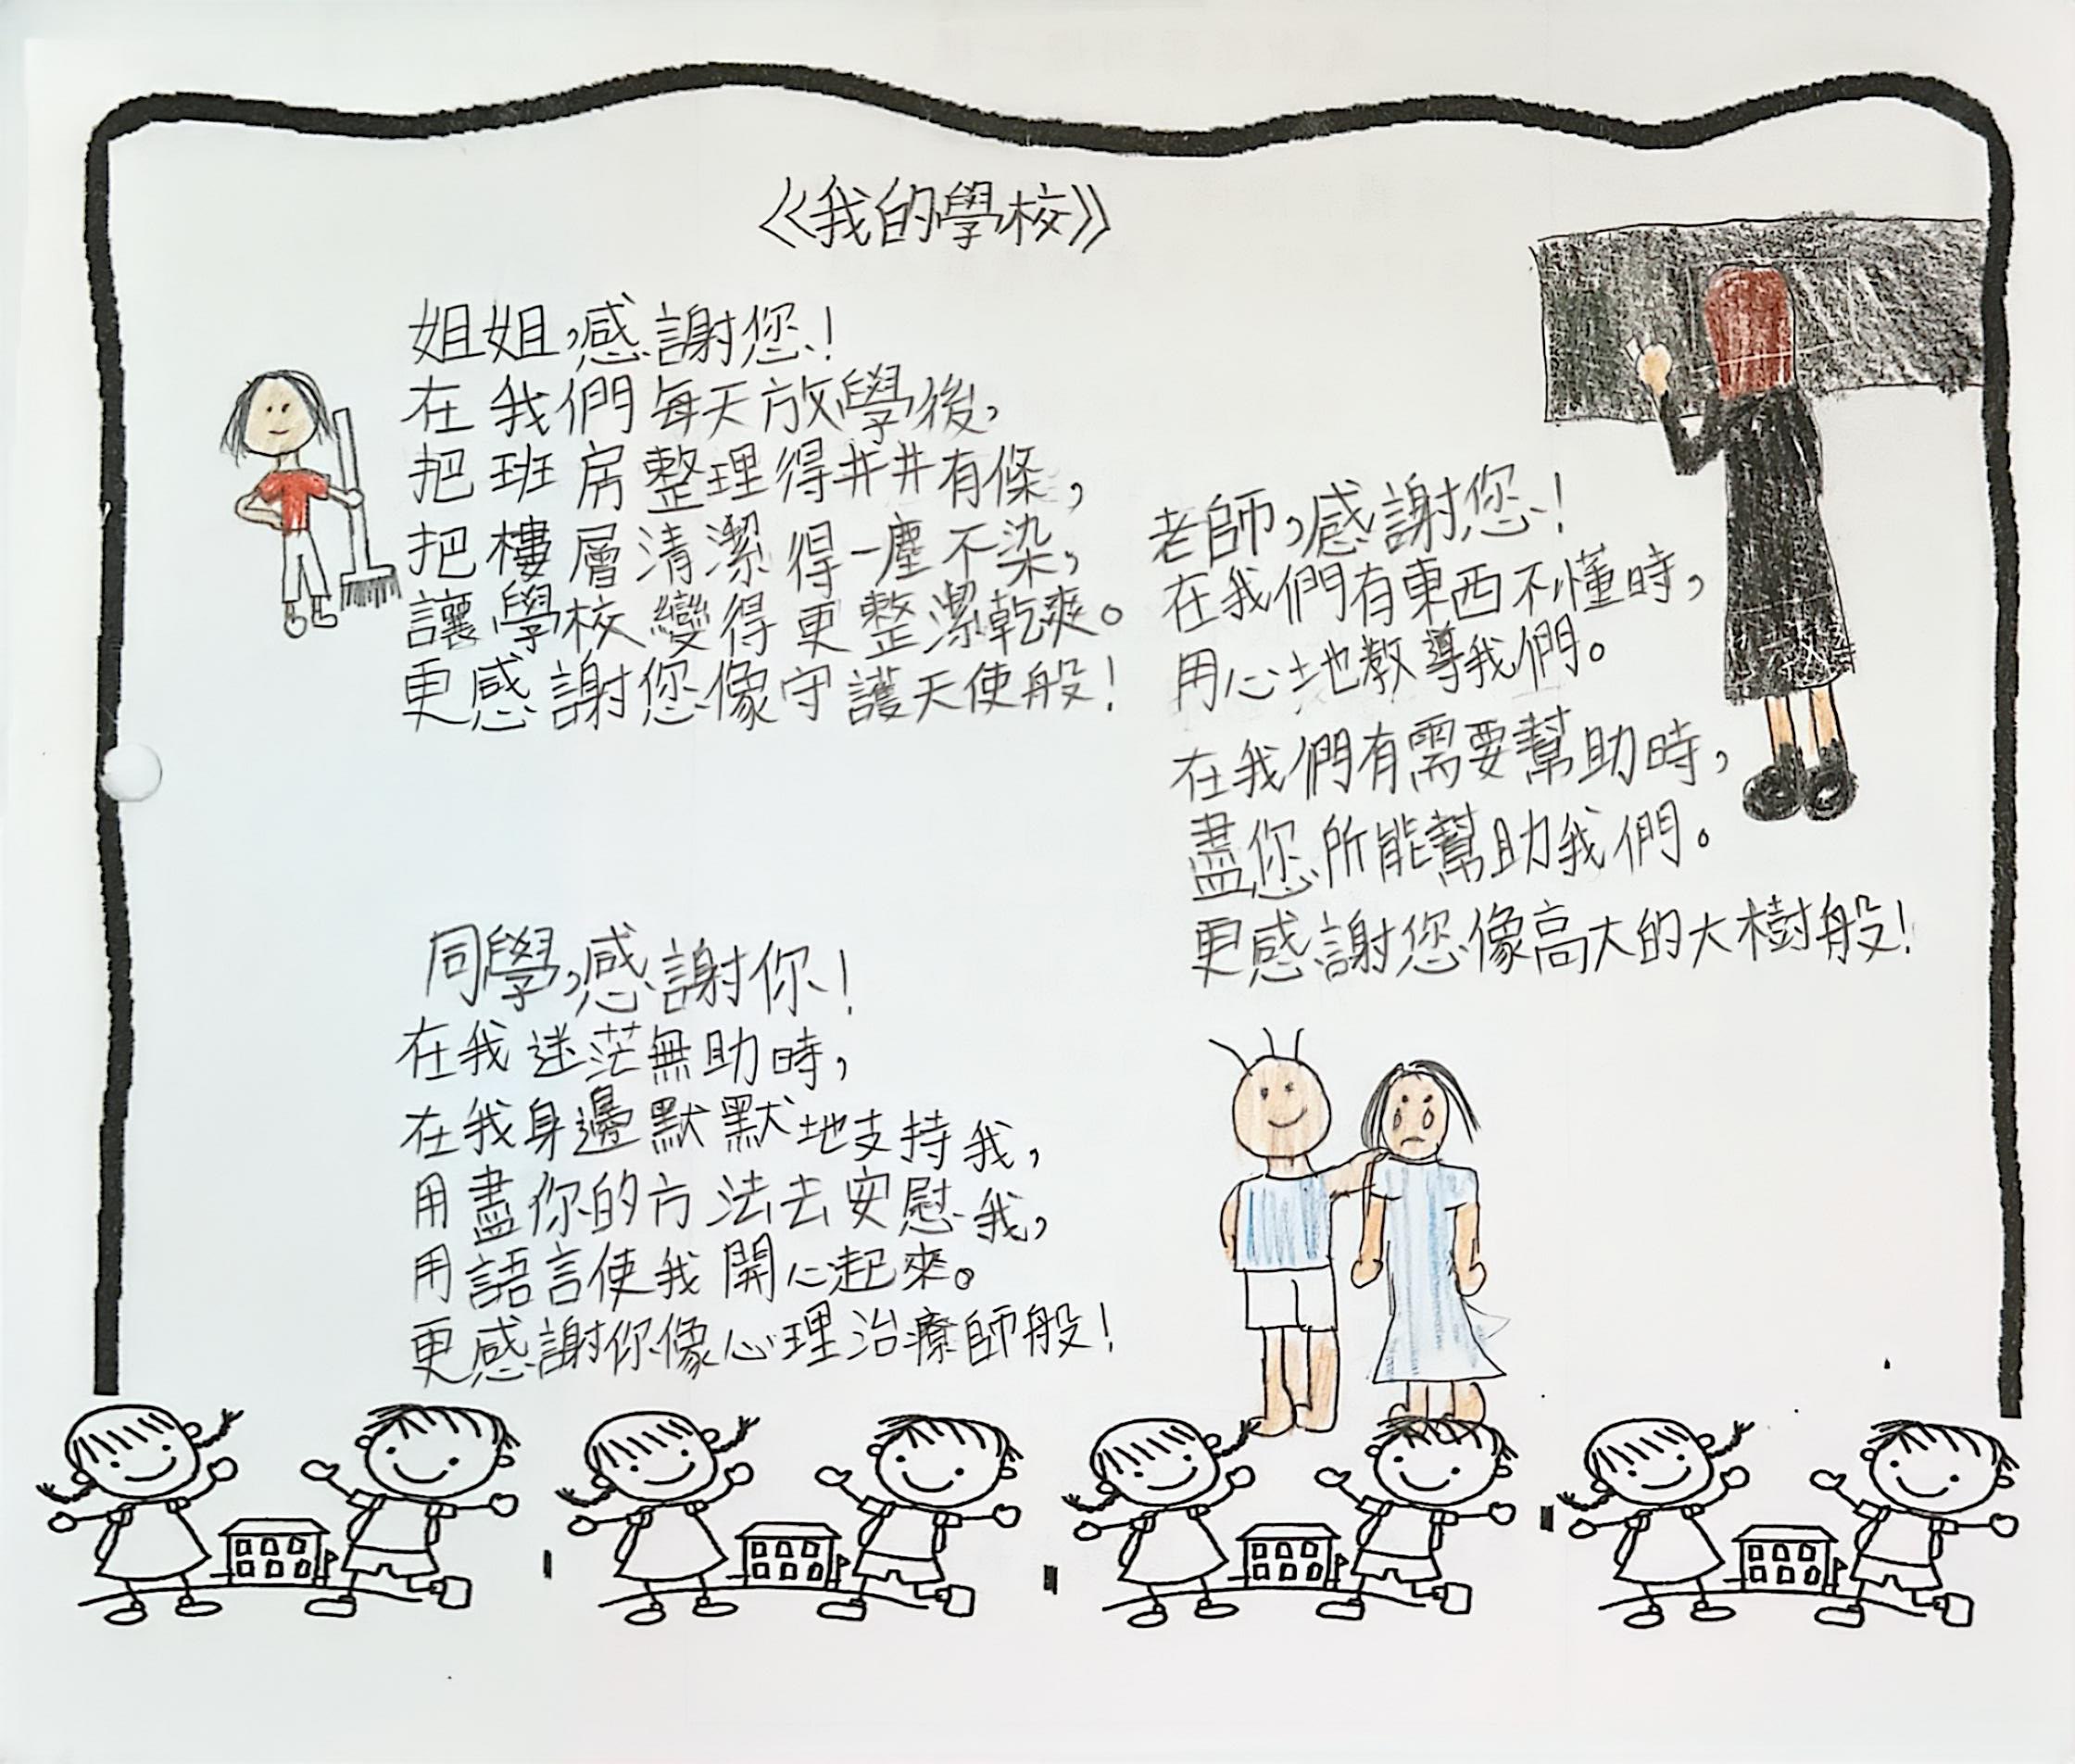 《我的學校》
姐姐,感謝您!
在我們每天放學後,
把班房整理得井井有條,
把樓層清潔得一塵不染,
讓學校變得更整潔乾爽。
更感謝您像守護天使般!
老師,感謝您!
在我們有東西不懂時,
用心地教導我們。
在我們有需要幫助時,
盡您所能幫助我們。
更感謝您像高大的大樹般!
同學,感謝你!
在我迷茫無助時,
在我身邊默默地支持我,
用盡你的方法去安慰我,
用語言使我開心起來。
更感謝你像心理治療師般!